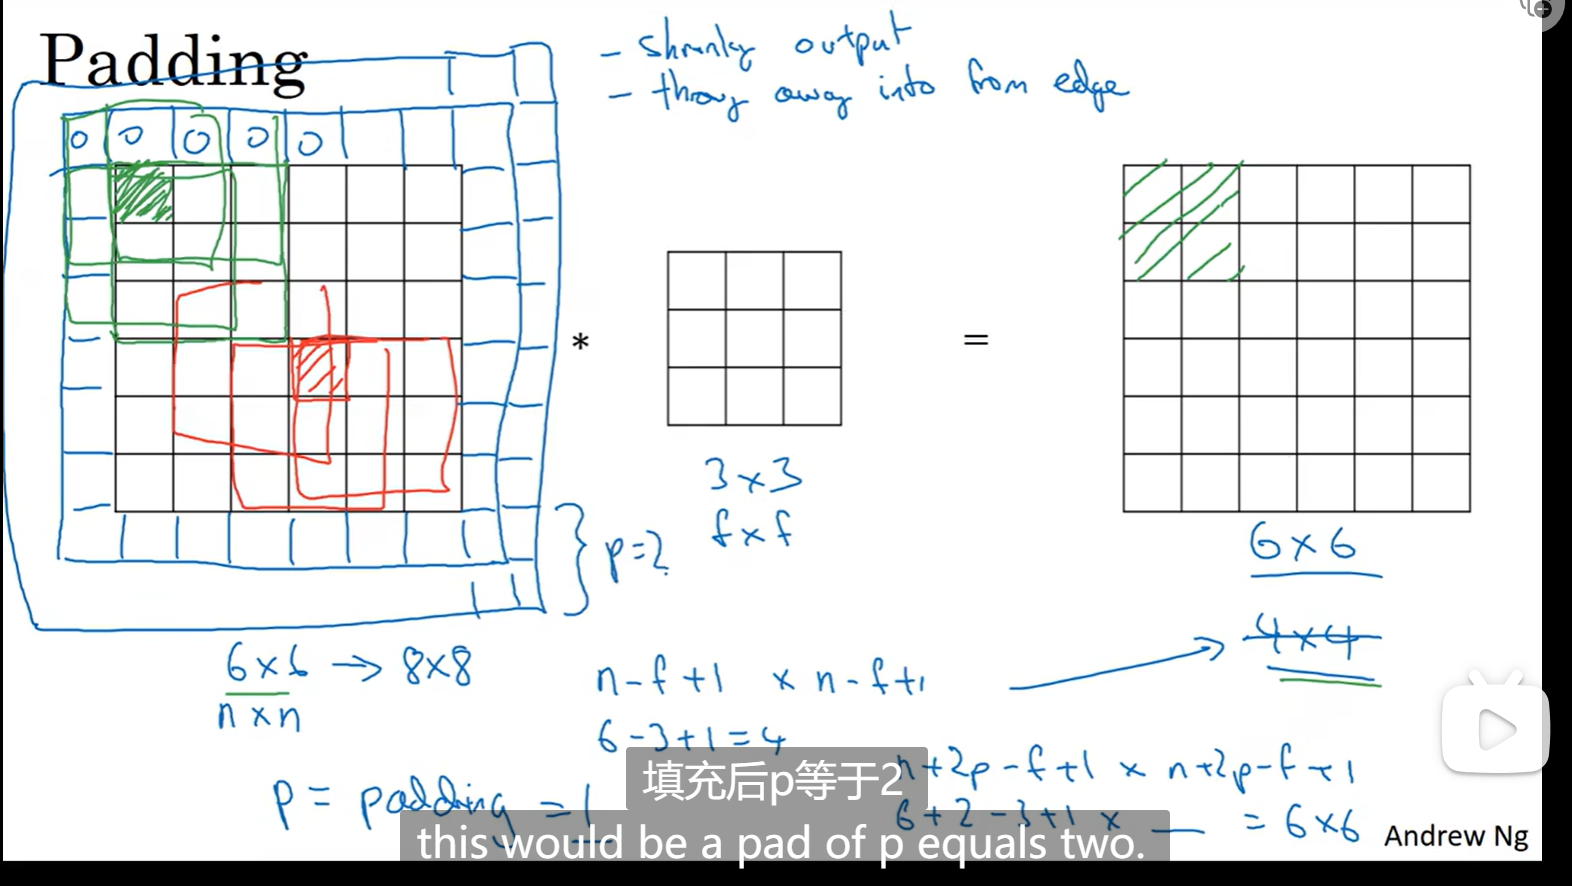 Padding
- shrinky output
- throw away info from edge
0 0 0 0 0
*
=
3 × 3
f × f
p = 2
6 × 6
4 × 4
6 × 6 → 8 × 8
n × n
n - f + 1 × n - f + 1
6 - 3 + 1 = 4
n + 2p - f + 1 × n + 2p - f + 1
6 + 2 - 3 + 1 × __ = 6 × 6
p = padding = 1
填充后p等于2
this would be a pad of p equals two.
Andrew Ng